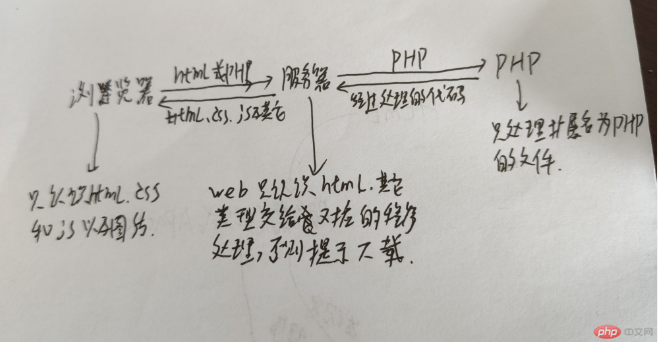 html或PHP
PHP
浏览器
服务器
PHP
html.css.js及其它
经过处理的代码
只处理扩展名为PHP
的文件.
只认识html.css
和js以及图片.
web只认识html.其它
类型交给对应的程序
处理,否则提示下载.
php 中文网